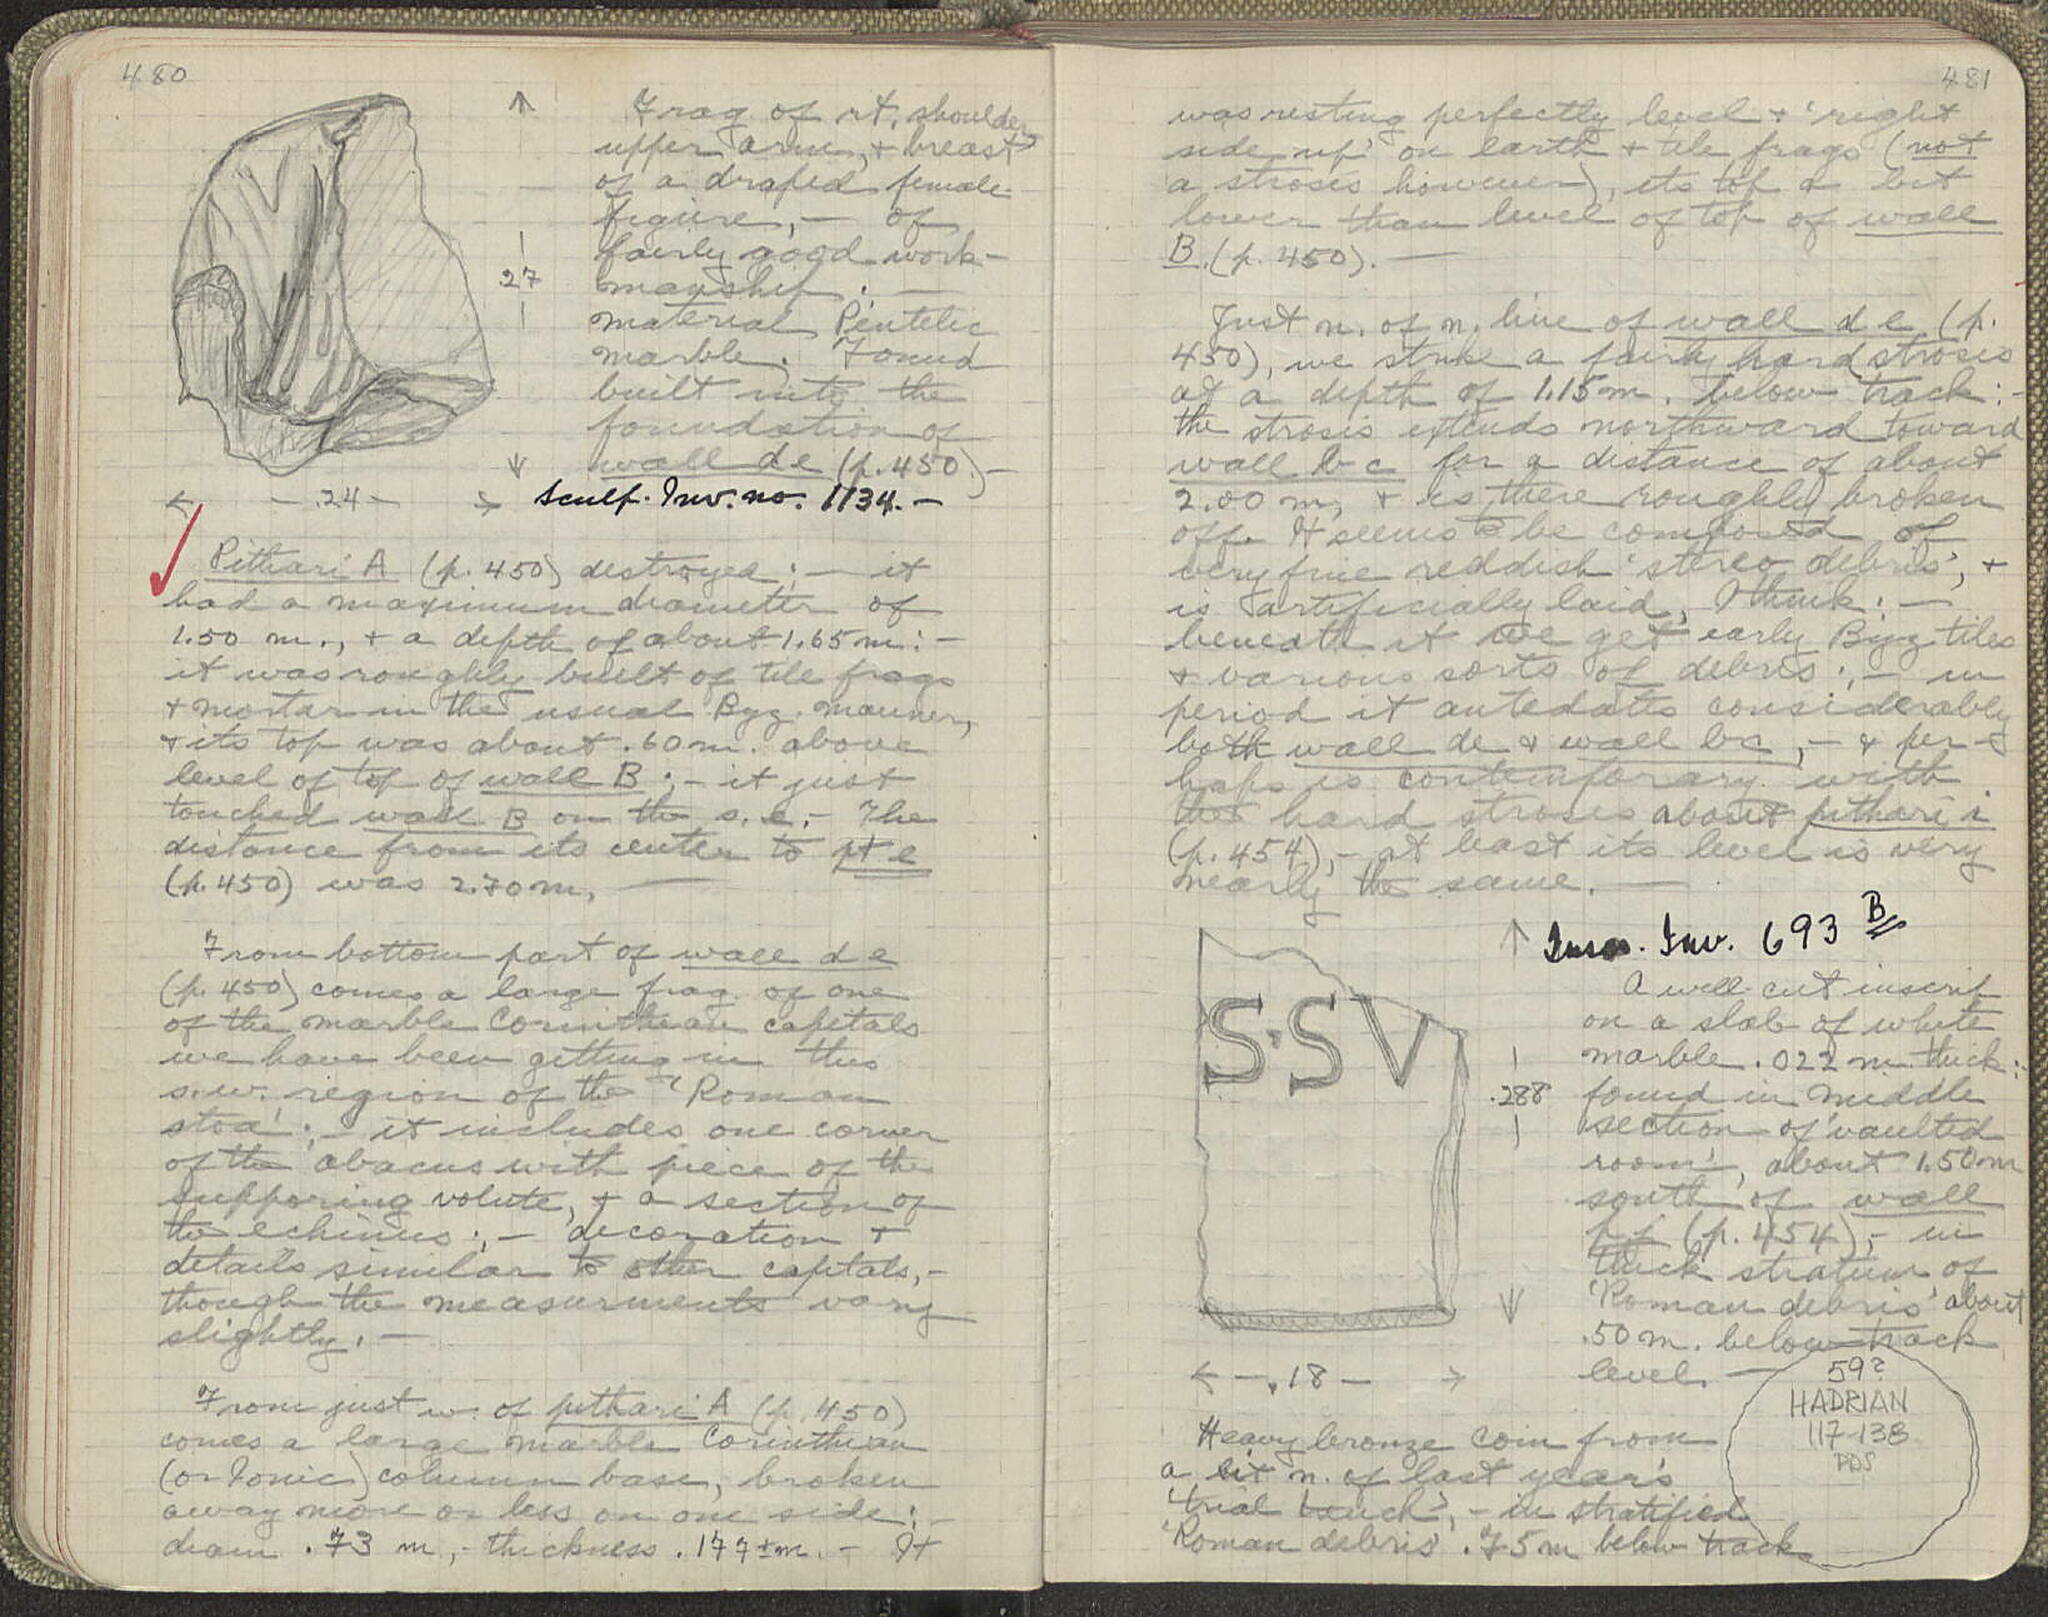 480
Frag of rt. shoulder,
upper arm, + breast
of a draped female
figure, — of
fairly good work-
manship : —
material Pentelic
marble. Found
built into the
foundation of
wall d e (p. 450) —
.27
← — .24 — →
Sculp. Inv. no. 1134. —
Pithari A (p. 450) destroyed : — it
had a maximum diameter of
1.50 m., + a depth of about 1.65 m : —
it was roughly built of tile frags
+ mortar in the usual Byz. manner,
+ its top was about .60 m. above
level of top of wall B ; — it just
touched wall B on the s. e. — The
distance from its center to pt e
(p. 450) was 2.70 m. —
From bottom part of wall d e
(p. 450) comes a large frag. of one
of the marble Corinthian capitals
we have been getting in this
s.w. region of the 'Roman
stoa' ; — it includes one corner
of the abacus with piece of the
supporing volute, + a section of
the echinus ; — decoration +
details similar to other capitals, —
though the measurments vary
slightly. —
From just w. of pithari A (p. 450)
comes a large marble Corinthian
(or Ionic) column base, broken
away more or less on one side ; —
diam .73 m, — thickness .177± m. — It
481
was resting perfectly level + 'right
side up' on earth + tile frags (not
a strosis however), its top a bit
lower than level of top of wall
B. (p. 450). —
Just n. of n. line of wall d e (p.
450), we strike a fairly hard strosis
at a depth of 1.15 m. below track : —
the strosis extends northward toward
wall b c for a distance of about
2.00 m, + is there roughly broken
off. It seems to be composed of
very fine reddish 'stereo debris', +
is artificially laid, I think : —
beneath it we get early Byz tiles
+ various sorts of debris ; — in
period it antedates considerably
both wall de + wall bc, — + per-
haps is contemporary with
the hard strosis about pithari i
(p. 454), — at least its level is very
nearly the same. —
Inscr. Inv. 693 B
S·SV
.288
← — .18 — →
A well cut inscrip
on a slab of white
marble .022 m thick : —
found in middle
section of 'vaulted
room', about 1.50 m
south of wall
(p. 454), — in
thick stratum of
'Roman debris' about
.50 m. below track
level. —
59?
HADRIAN
117-138
PDS
Heavy bronze coin from
a bit n. of last year's
'trial trench', — in stratified
'Roman debris' .75 m below track